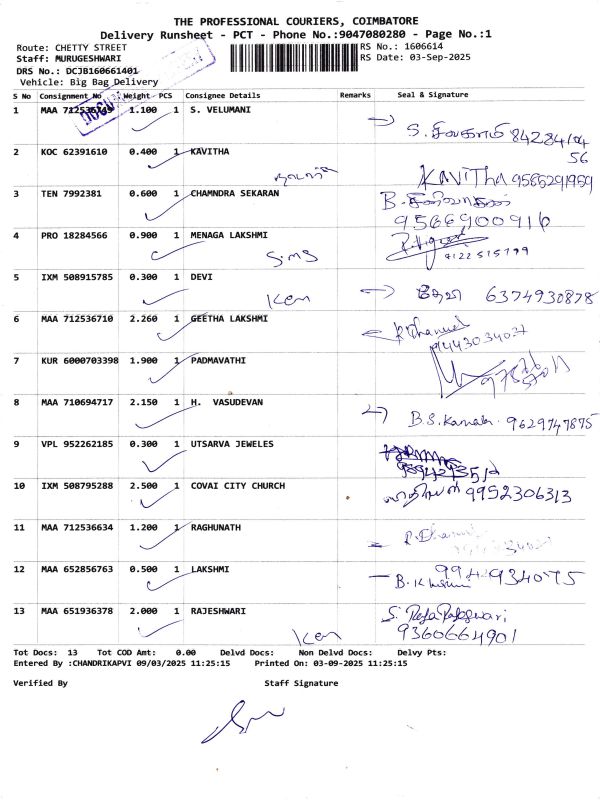 THE PROFESSIONAL COURIERS, COIMBATORE
Delivery Runsheet - PCT - Phone No.:9047080280 - Page No.:1
Route: CHETTY STREET
RS No.: 1606614
Staff: MURUGESHWARI
RS Date: 03-Sep-2025
DRS No.: DCJB160661401
Vehicle: Big Bag Delivery
S No Consignment No Weight PCS Consignee Details Remarks Seal & Signature
1 MAA 1.100 1 S. VELUMANI
2 KOC 62391610 0.400 1 KAVITHA KAVITha 9585291959
3 TEN 7992381 0.600 1 CHAMNDRA SEKARAN
9566900916
4 PRO 18284566 0.900 1 MENAGA LAKSHMI
Sims 9122515799
5 IXM 508915785 0.300 1 DEVI தேவி 6374930878
Ken
6 MAA 712536710 2.260 1 GEETHA LAKSHMI
7 KUR 6000703398 1.900 1 PADMAVATHI
8 MAA 710694717 2.150 1 H. VASUDEVAN
B.S. 9629747875
9 VPL 952262185 0.300 1 UTSARVA JEWELES
10 IXM 508795288 2.500 1 COVAI CITY CHURCH 9952306313
11 MAA 712536634 1.200 1 RAGHUNATH
12 MAA 652856763 0.500 1 LAKSHMI
13 MAA 651936378 2.000 1 RAJESHWARI
Ken 9360664901
Tot Docs: 13 Tot COD Amt: 0.00 Delvd Docs: Non Delvd Docs: Delvy Pts:
Entered By :CHANDRIKAPVI 09/03/2025 11:25:15 Printed On: 03-09-2025 11:25:15
Verified By Staff Signature